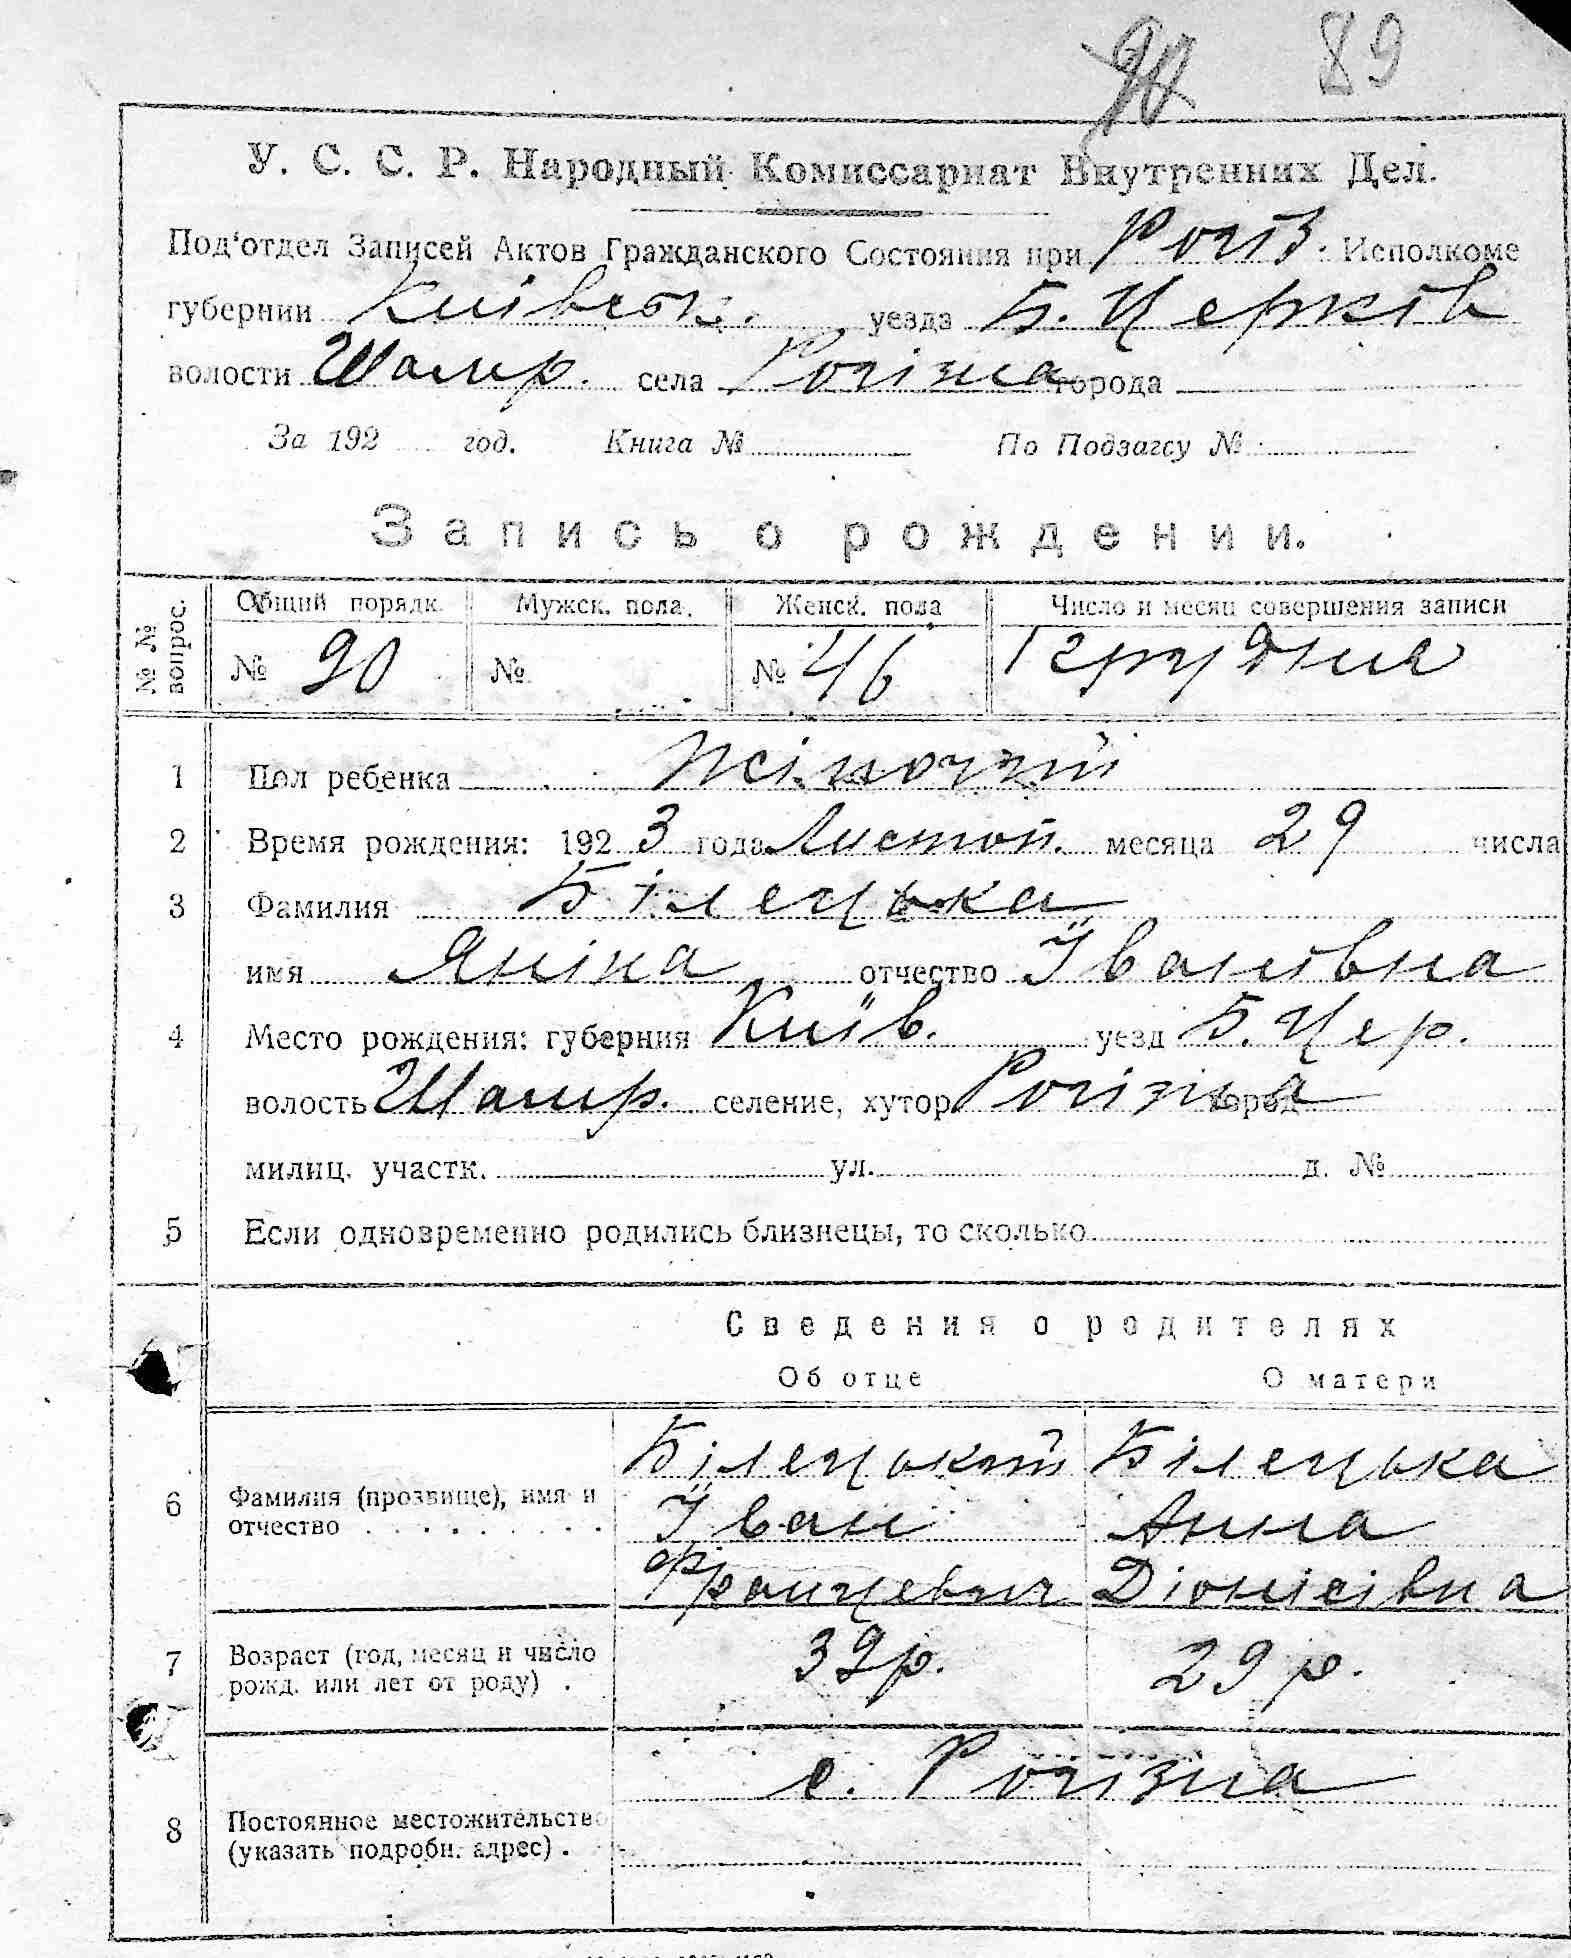 89
У. С. С. Р. Народный Комиссариат Внутренних Дел.
Под'отдел Записей Актов Гражданского Состояния при Рогіз. Исполкоме
губернии Київськ. уезда Б. Церків
волости Шамр. села Рогізна города
За 192 год. Книга № По Подзагсу №
Запись о рождении.
№ № вопрос. Общий порядк. Мужск. пола. Женск. пола Число и месяц совершения записи
№ 90 № № 46 1 грудня
1 Пол ребенка Жіночий
2 Время рождения: 1923 года Листоп. месяца 29 числа
3 Фамилия Білецька
имя Яніна отчество Їванівна
4 Место рождения: губерния Київ. уезд Б. Цер.
волость Шамр. селение, хутор Рогізна город
милиц. участк. ул. д. №
5 Если одновременно родились близнецы, то сколько
Сведения о родителях
Об отце О матери
Білецький Білецька
6 Фамилия (прозвище), имя и отчество Їван Анна
Францевич Діонісівна
7 Возраст (год, месяц и число рожд. или лет от роду) . 39р. 29 р.
с. Рогізна
8 Постоянное местожительство
(указать подробн. адрес) .